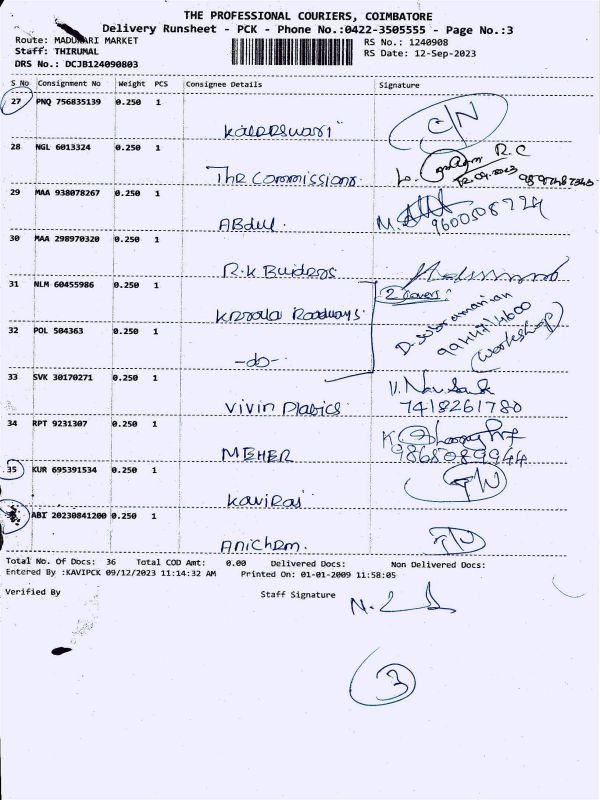 THE PROFESSIONAL COURIERS, COIMBATORE
Delivery Runsheet - PCK - Phone No.:0422-3505555 - Page No.:3
Route: MADUKARI MARKET RS No.: 1240908
Staff: THIRUMAL RS Date: 12-Sep-2023
DRS No.: DCJB124090803
S No Consignment No Weight PCS Consignee Details Signature
27 PNQ 756835139 0.250 1
Kaleeswari C/N
28 NGL 6013324 0.250 1
The Commissionr. R.C
12.09.2023
29 MAA 938078267 0.250 1
Abdul. M. 9600508724
30 MAA 298970320 0.250 1
R.K Buiders
31 NLM 60455986 0.250 1 2 Covers
Kerala Roadways. D. Subramanian
32 POL 504363 0.250 1 9944714600
-do- (workshop)
33 SVK 30170271 0.250 1
Vivin Plasics 7418261780
34 RPT 9231307 0.250 1
MEHER 9865089944
35 KUR 695391534 0.250 1
Kaviraj
ABI 20230841200 0.250 1
Anichem.
Total No. Of Docs: 36 Total COD Amt: 0.00 Delivered Docs: Non Delivered Docs:
Entered By :KAVIPCK 09/12/2023 11:14:32 AM Printed On: 01-01-2009 11:58:05
Verified By Staff Signature
3